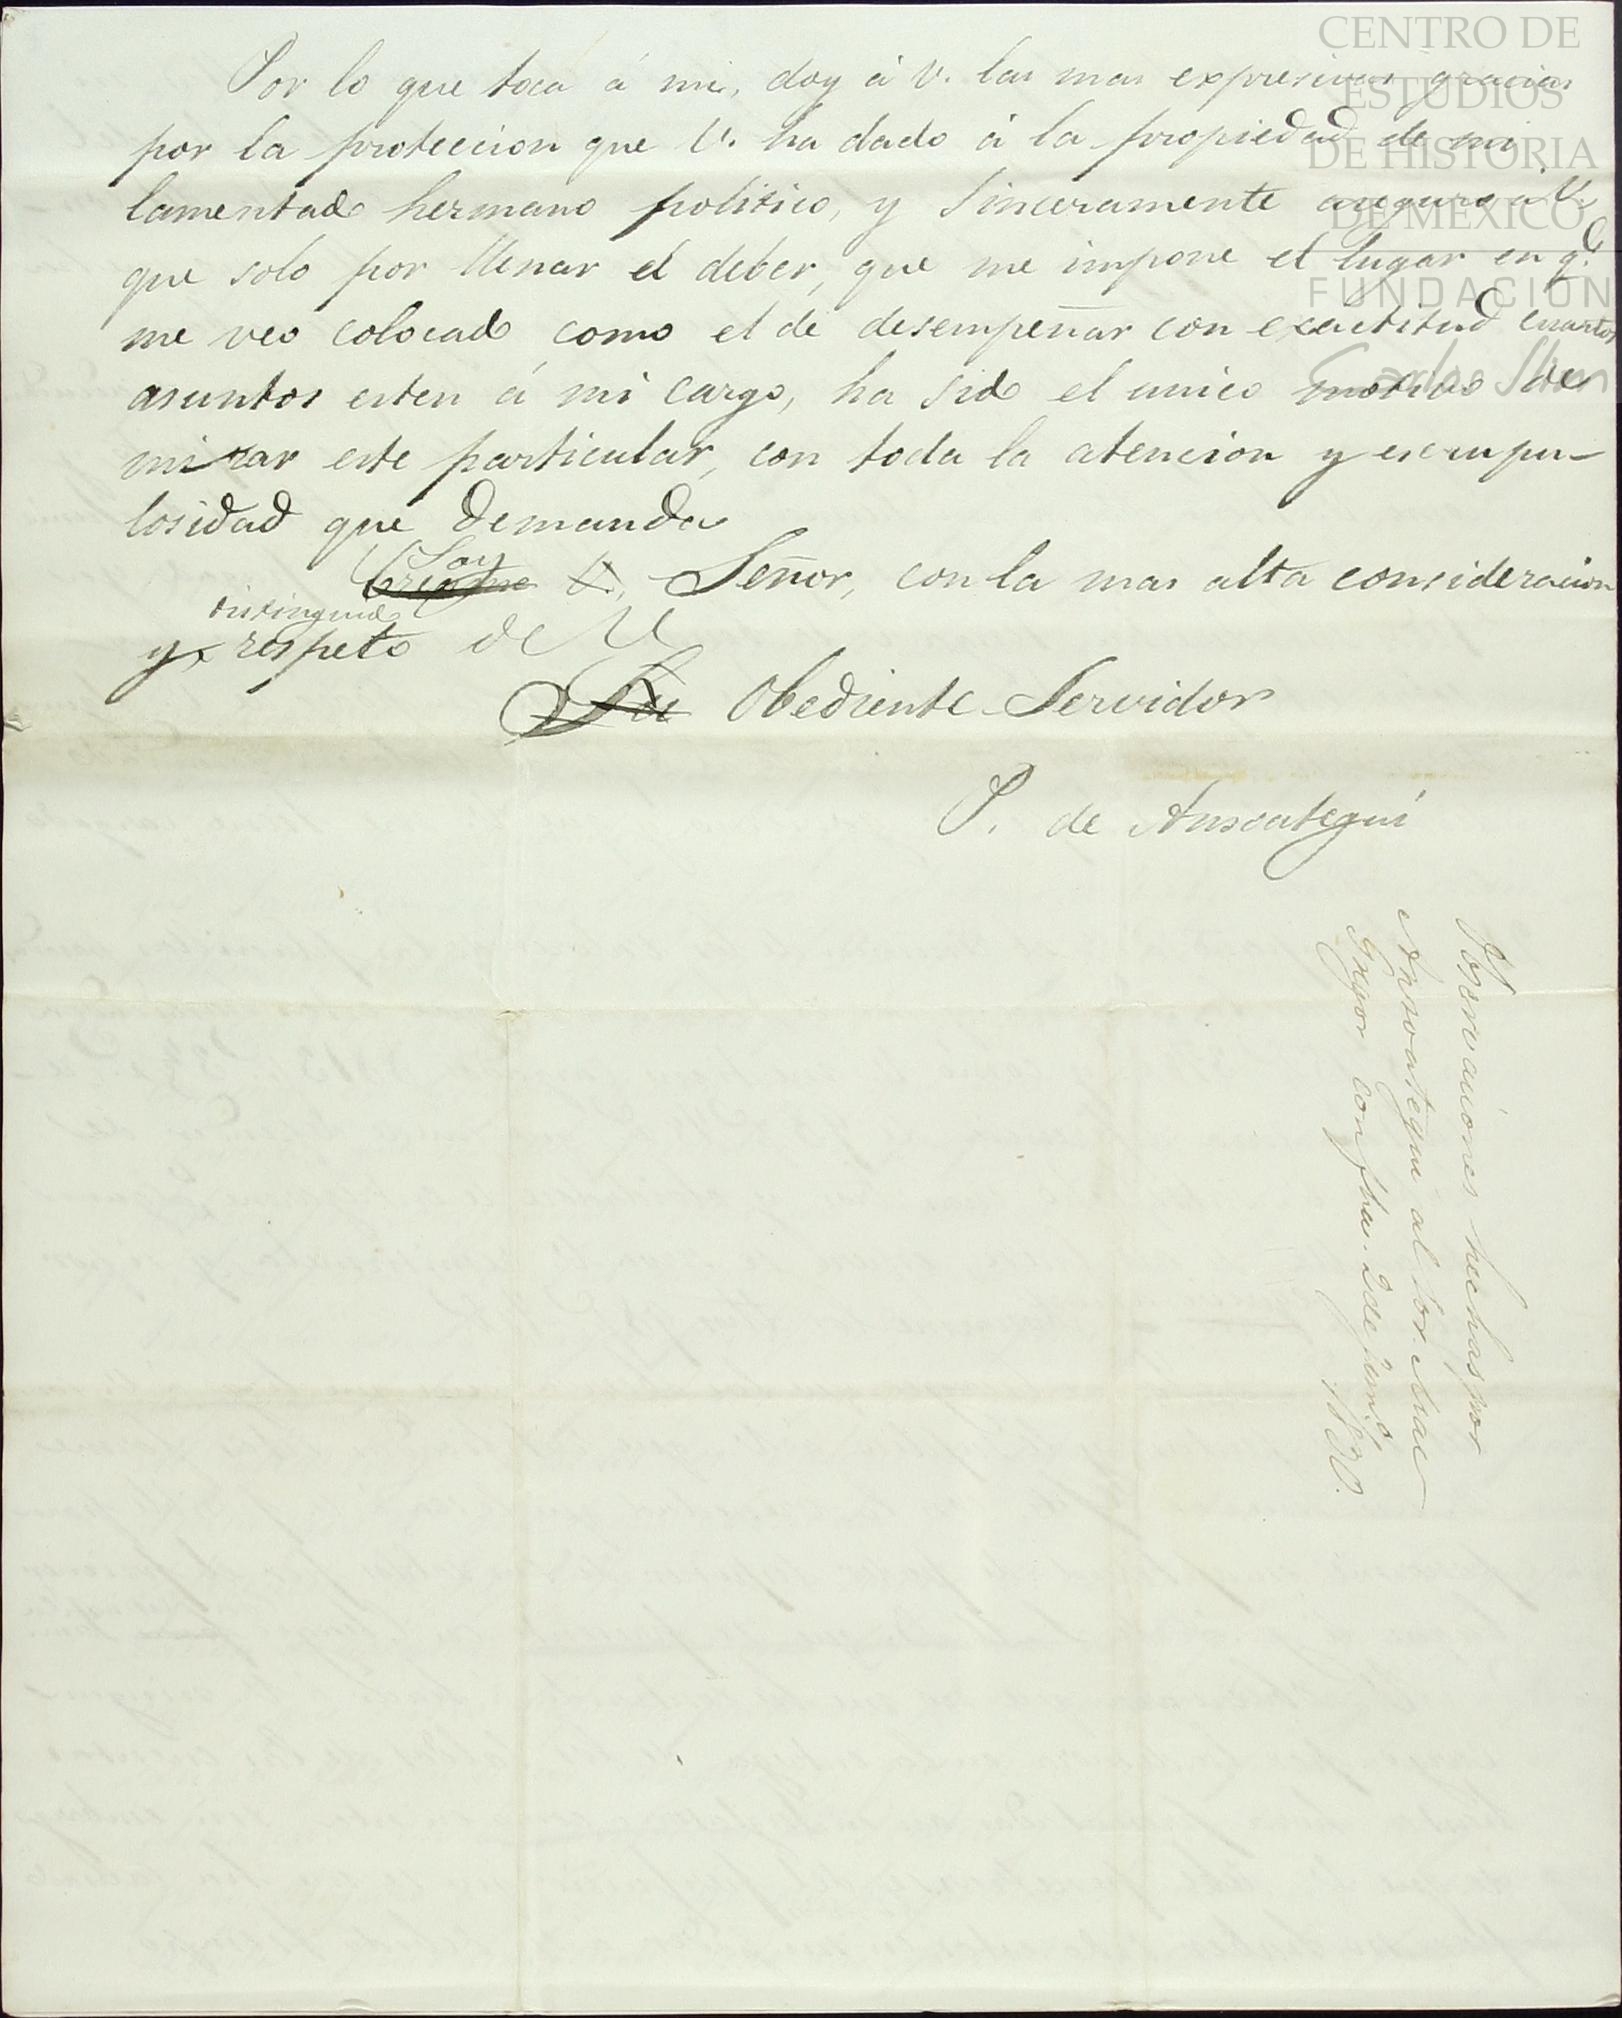 Por lo que toca á mi, doy á V. las mas expresivas gracias
por la proteccion que V. ha dado á la propiedad de mi
lamentado hermano politico, y sinceramente aseguro á V.
que solo por llenar el deber, que me impone el lugar en q.e
me veo colocado como el de desempeñar con exactitud cuantos
asuntos esten á mi cargo, ha sido el unico motivo de
mirar este particular, con toda la atencion y escrupu-
losidad que demanda
Soy
Creame V. Señor, con la mas alta consideracion
distinguido
y respeto de V
Su Obediente Servidor
P. de Ansoategui
Observaciones hechas por
Ansoategui al Sor. Mac
Gregor con fha. 2 de Junio
1830.
CENTRO DE
ESTUDIOS
DE HISTORIA
DE MEXICO
FUNDACION
Carlos Slim